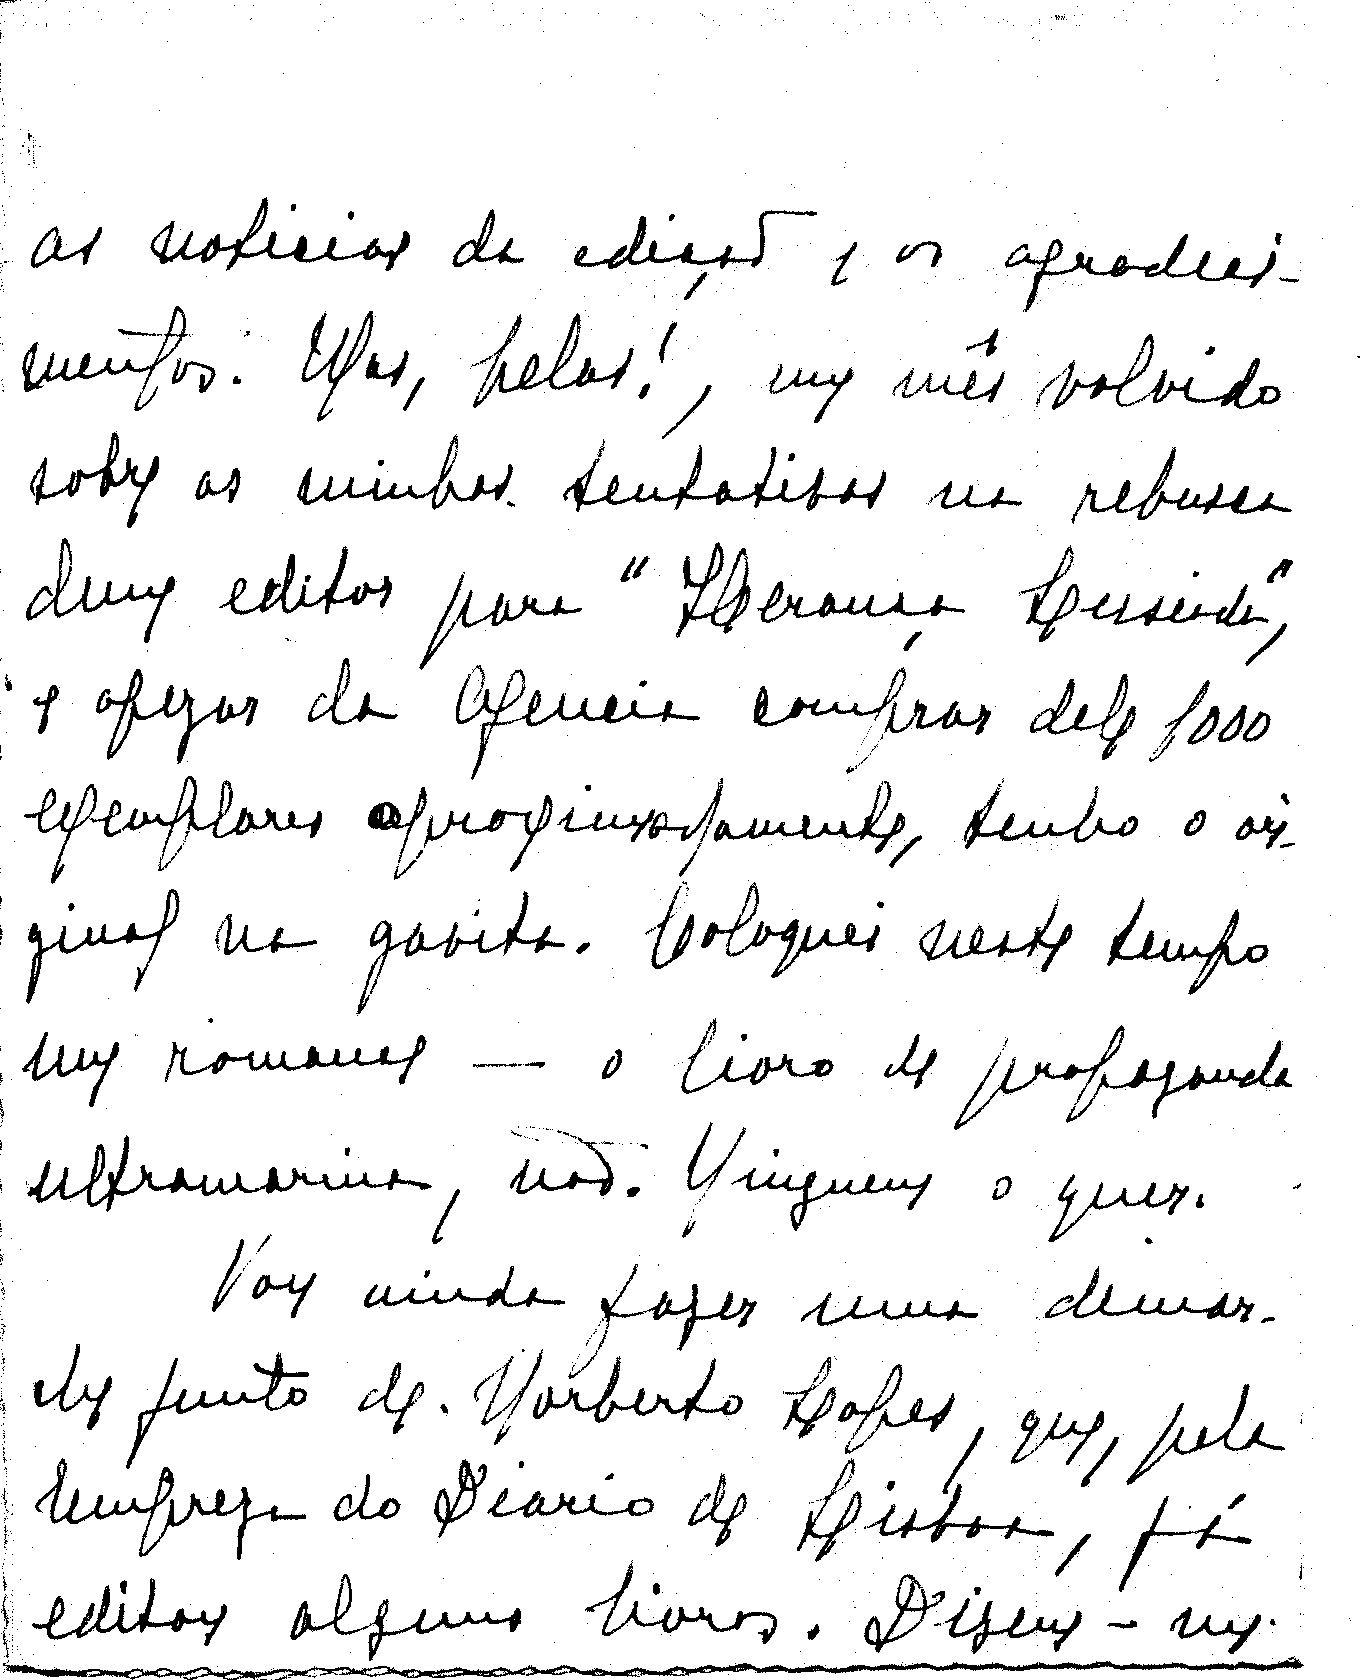 as noticias da edição e os agradeci-
mentos. Mas, helas!, um mês volvido
sobre as minhas tentativas na rebusca
dum editor para "Herança Lusiada",
e apezar da Agencia comprar dele 1000
exemplares aproximadamente, tenho o ori-
ginal na gaveta. Coloquei neste tempo
um romance — o livro de propaganda
ultramarina, não. Ninguem o quer.
Vou ainda fazer uma demar-
che junto de Norberto Lopes, que, pela
Empreza do Diario de Lisboa, já
editou alguns livros. Dizem-me